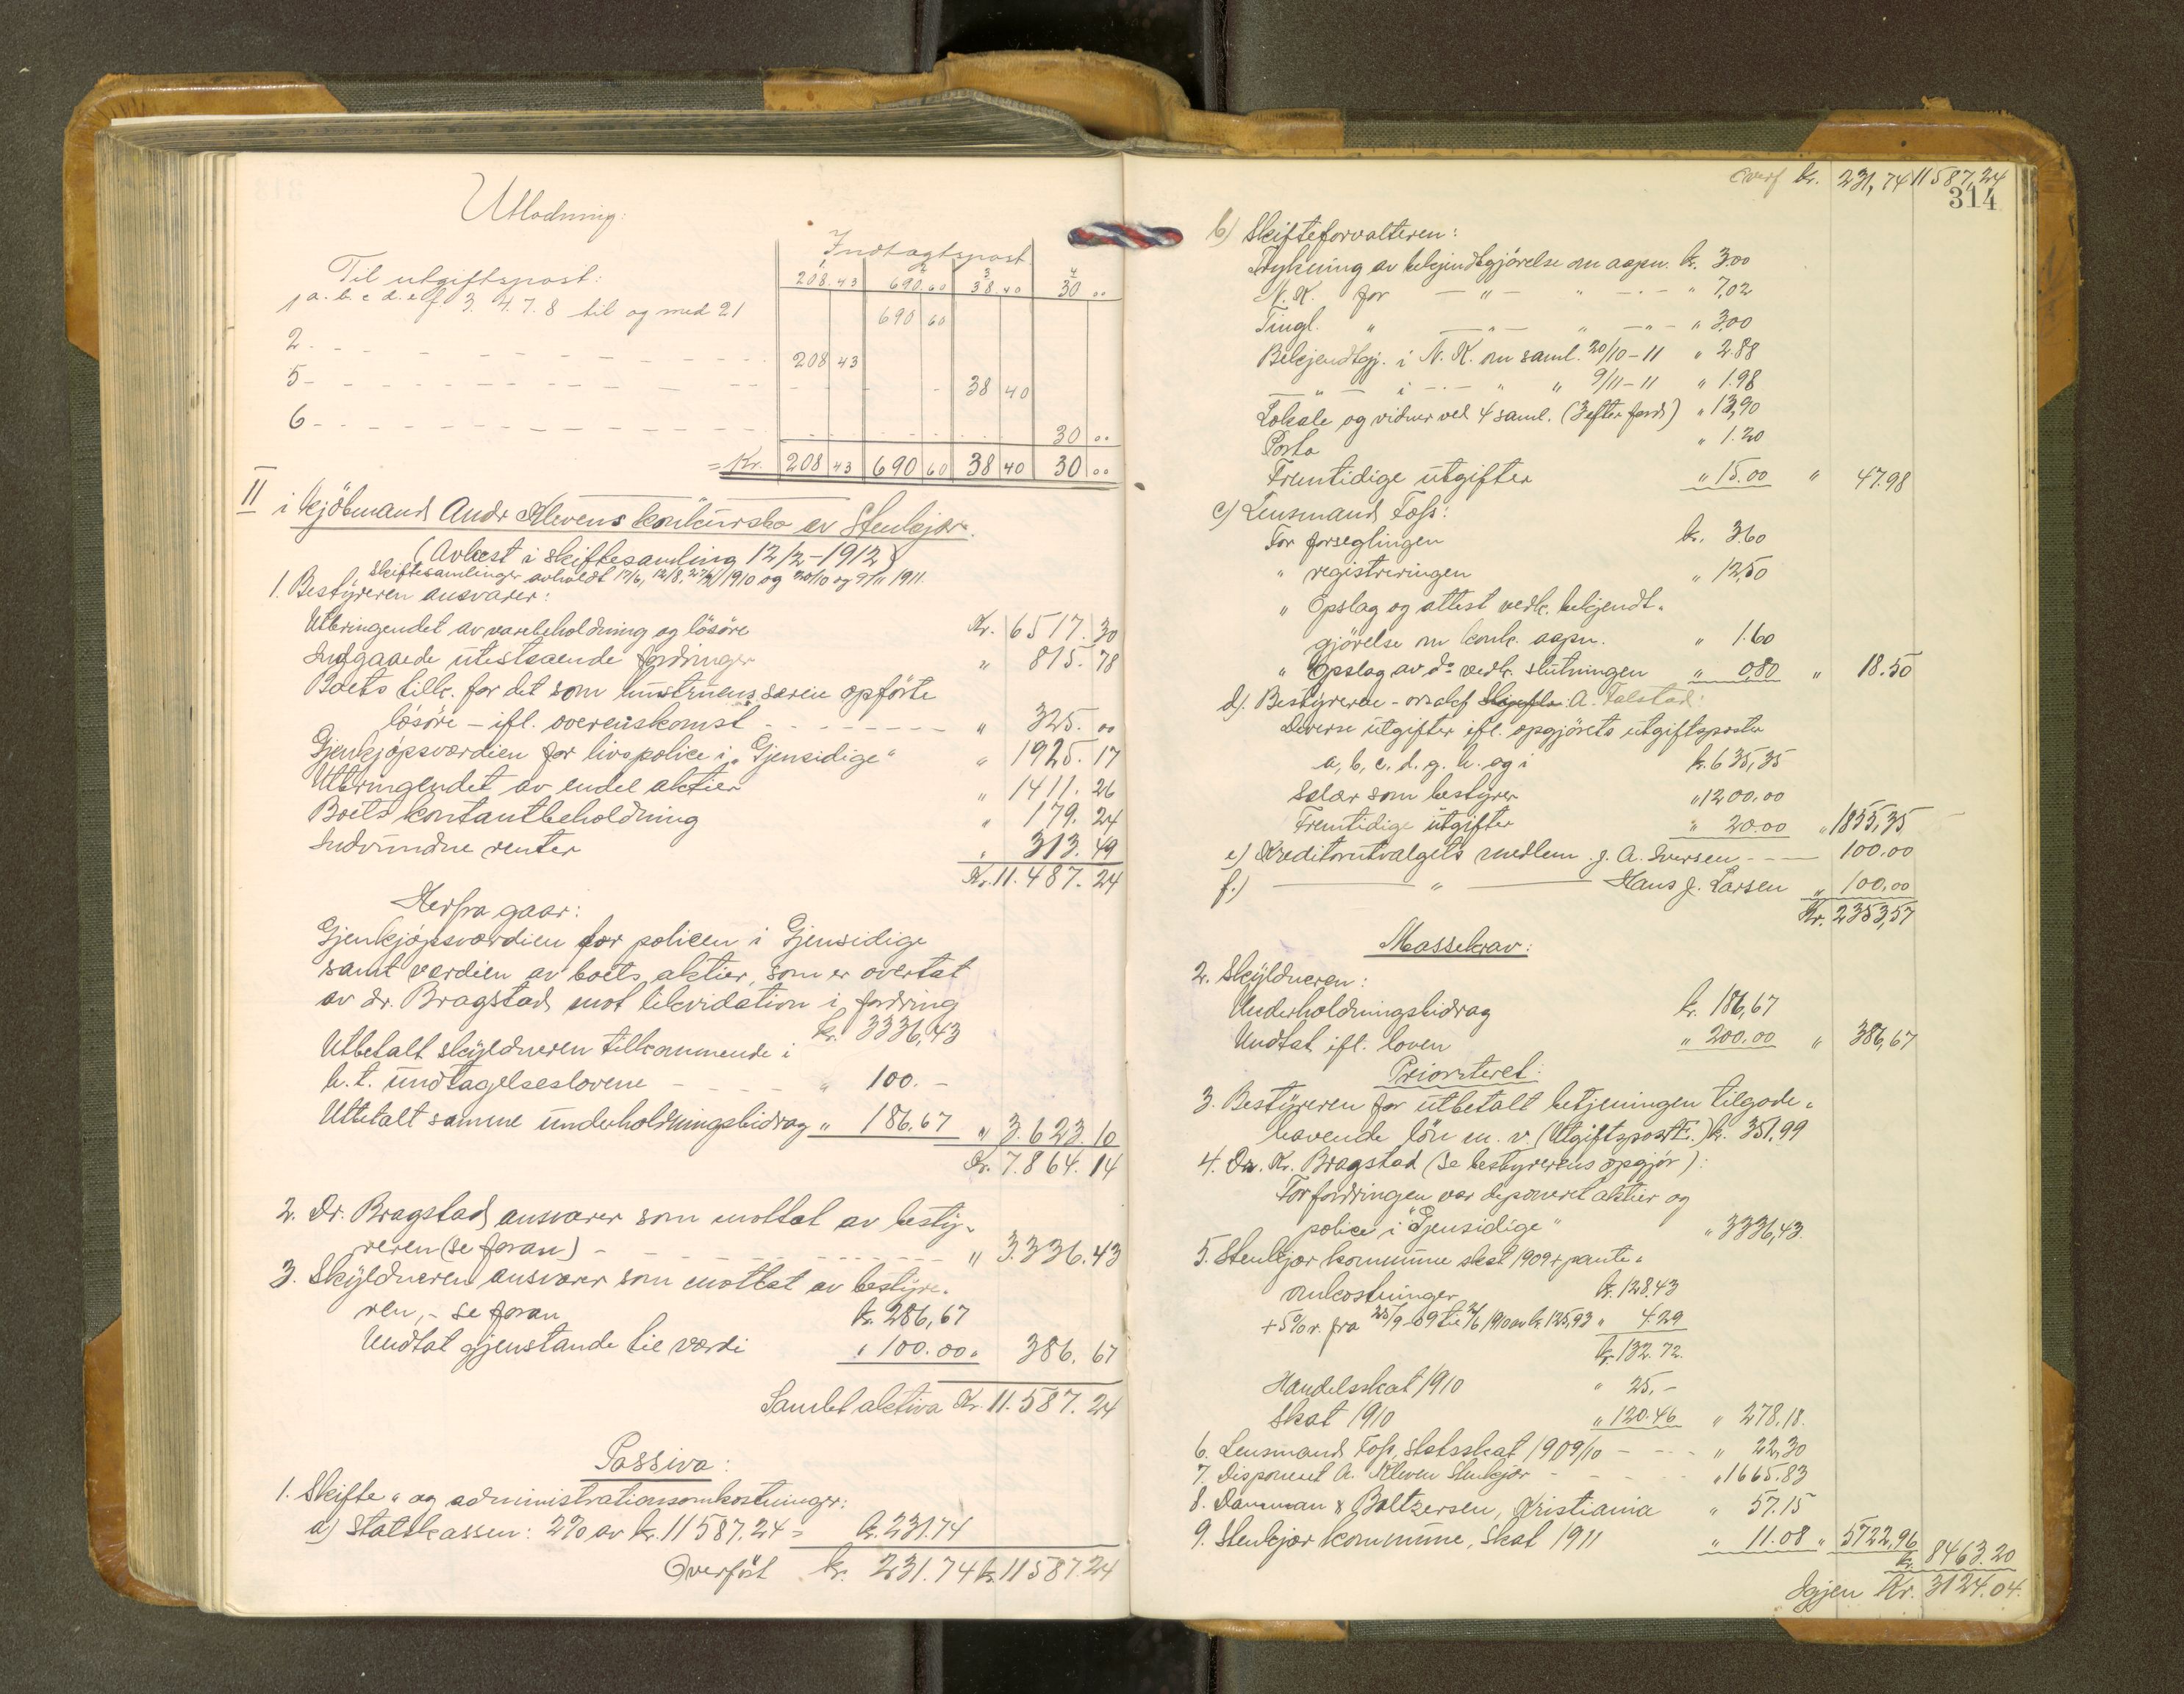 Utlodning:
Indtægtspost
Til utgiftspost:
1 208.43 2 690.60 3 38.40 4 30 00
1 a. b. c d. e f. 3. 4. 7. 8 til og med 21 690 60
2 - - - 208 43
5 - - - 38 40
6 - - - 30 00
= Kr. 208 43 690 60 38 40 30 00
II i kjöbmand Andr Klevens konkursbo av Stenkjær.
(Avlæst i skiftesamling 12/2 - 1912)
Skiftesamlinger avholdt 17/6, 12/8, 1910 og 20/10 og 9/11 1911.
1. Bestyreren ansvarer:
Utbringendet av varebeholdning og lösöre Kr. 6517. 30
Indgaaede utestaaende fordringer " 815. 78
Boets tilk. for det som hustruens særeie opförte
lösöre - ifl. overenskomst - - - " 325. 00
Gjenkjöpsværdien for livspolice i "Gjensidige" " 1925. 17
Utbringendet av endel aktier " 1411. 26
Boets kontantbeholdning " 179. 24
Indvundne renter " 313. 49
Kr. 11.487. 24
Herfra gaar:
Gjenkjöpsværdien for policen i Gjensidige
samt værdien av boets aktier, som er overtat
av dr. Bragstad mot likvidation i fordring
kr. 3336,43
Utbetalt skyldneren tilkommende i
h. t. undtagelseslovene - - - " 100. -
Utbetalt samme underholdningsbidrag " 186,67 " 3.623. 10
Kr. 7.864. 14
2. Dr. Bragstad ansvarer som mottat av besty-
reren (se foran) - - - " 3.336. 43
3. Skyldneren ansvarer som mottat av bestyre-
ren, - se foran kr. 286,67
Undtat gjenstande til værdi " 100.00 " 386. 67
Samlet aktiva Kr. 11.587. 24
Passiva:
1. Skifte- og administrationsomkostninger:
a) Statskassen: 2% av kr. 11587.24 = kr. 231.74
Overfört kr. 231.74 kr. 11587.24
Overf kr. 231,74 11587,24
314
b) Skifteforvalteren:
Trykning av bekjendtgjörelse om aapn. kr. 3.00
N. K. for - " - " - " - " 7,02
Tingl. " - " - " - " - " 3.00
Bekjendtgj. i N. K. om saml. 20/10 - 11 " 2.88
- " - i - " - " " 9/11 - 11 " 1.98
Lokale og vidner ved 4 saml. (3 efter ford) " 13,90
Porto " 1.20
Fremtidige utgifter " 15.00 " 47.98
c) Lensmand Foss:
For forseglingen kr. 3.60
" registreringen " 12,50
" Opslag og attest vedk. bekjendt-
gjörelse om konk. aapn. " 1.60
" Opslag av do vedk. slutningen " 0,80 " 18.50
d). Bestyreren - orsakf A. Falstad:
Diverse utgifter ifl. opgjörets utgiftsposter
a, b, c. d. g. h. og i kr. 635,35
Salær som bestyrer " 1200.00
Fremtidige utgifter " 20.00 " 1855,35
e) Kreditorutvalgets medlem J. A. Iversen - - - 100.00
f.) - " - Hans J. Larsen " 100,00
Kr. 2353,57
Massekrav:
2. Skyldneren:
Underholdningsbidrag kr. 186,67
Undtat ifl. loven " 200.00 " 386,67
Prioriteret:
3. Bestyreren for utbetalt betjeningen tilgode-
havende lön m. v. (Utgiftspost E.) kr. 351,99
4. Dr. Kr. Bragstad (se bestyrerens opgjör):
For fordringen var deponeret aktier og
police i "Gjensidige" " 3336,43.
5. Stenkjær kommune skat 1909 + pante-
omkostninger kr. 128.43
+ 5% r. fra 25/9 - 09 til 2/6 1910 av kr. 125,93 " 4.29
kr. 132.72.
Handelsskat 1910 " 25.-
Skat 1910 " 120.46 " 278,18.
6. Lensmand Foss, statsskat 1909/10 - - - " 22,30
7. Disponent A. Kleven Stenkjær - - - " 1665.83
8. Daneman & Baltzersen, Kristiania " 57.15
9. Stenkjær kommune, Skat 1911 " 11.08 " 5722,96
kr. 8463.20
Igjen Kr. 3124.04.